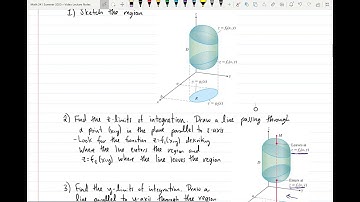 Math 24 - Summer 2020 - Video Lecture Notes
1) Sketch the region
z = f₂(x,y)
D
z = f₁(x,y)
y
x
R
2) Find the z-limits of integration. Draw a line passing through
a point (x,y) in the plane parallel to z-axis
- Look for the function z = f₁(x,y) describing
where the line enters the region and
z = f₂(x,y) where the line leaves the region
M
Leaves at
z = f₂(x,y)
D
Enters at
z = f₁(x,y)
3) Find the y-limits of integration. Draw a
line parallel to y-axis through the region